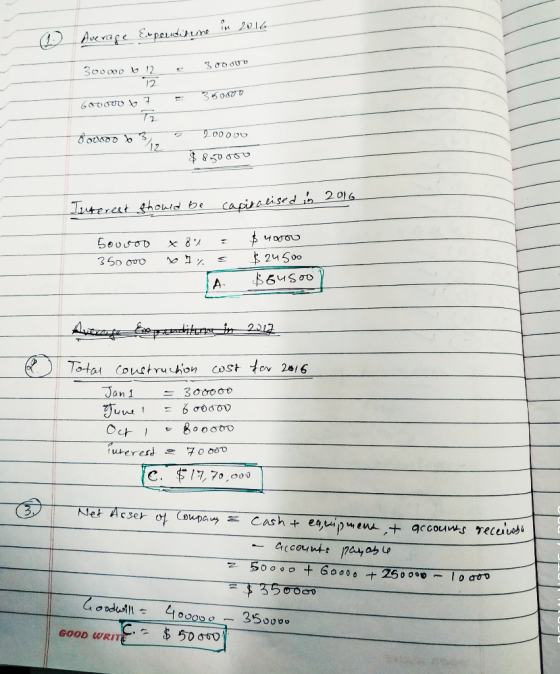 1. Average Expenditure in 2016
300000 x 12/12 = 300000
600000 x 7/12 = 350000
800000 x 3/12 = 200000
$ 850000
Interest should be capitalised in 2016
500000 x 8% = $ 40000
350000 x 7% = $ 24500
A. $64500
Average Expenditure in 2017
2 Total construction cost for 2016
Jan 1 = 300000
June 1 = 600000
Oct 1 = 800000
interest = 70000
C. $17,70,000
3. Net Asset of Company = Cash + equipment + accounts receivable
- accounts payable
= 50000 + 60000 + 250000 - 10000
= $350000
Goodwill = 400000 - 350000
C. = $ 50000
GOOD WRITE